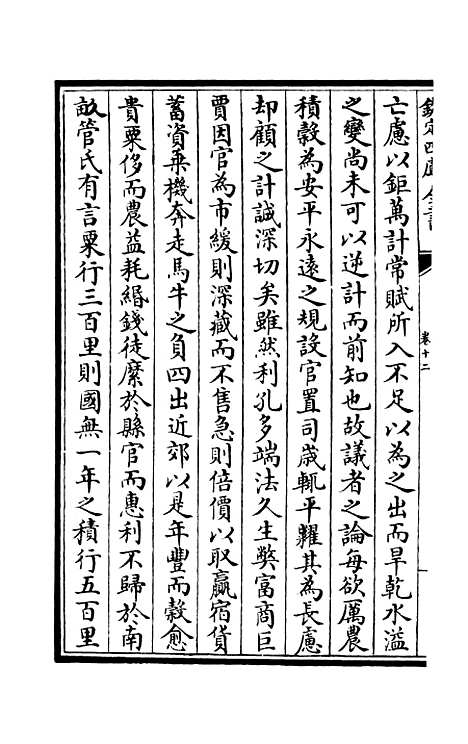 欽定四庫全書
卷十二
亡慮以鉅萬計常賦所入不足以為之出而旱乾水溢
之變尚未可以逆計而前知也故議者之論每欲厲農
積穀為安平永遠之規設官置司歲輒平糴其為長慮
却顧之計誠深切矣雖然利孔多端法久生弊富商巨
賈因官為市緩則深藏而不售急則倍價以取贏宿貨
蓄資乗機奔走馬牛之負四出近郊以是年豐而穀愈
貴粟侈而農益耗緡錢徒縻於縣官而惠利不歸於南
畝管氏有言粟行三百里則國無一年之積行五百里